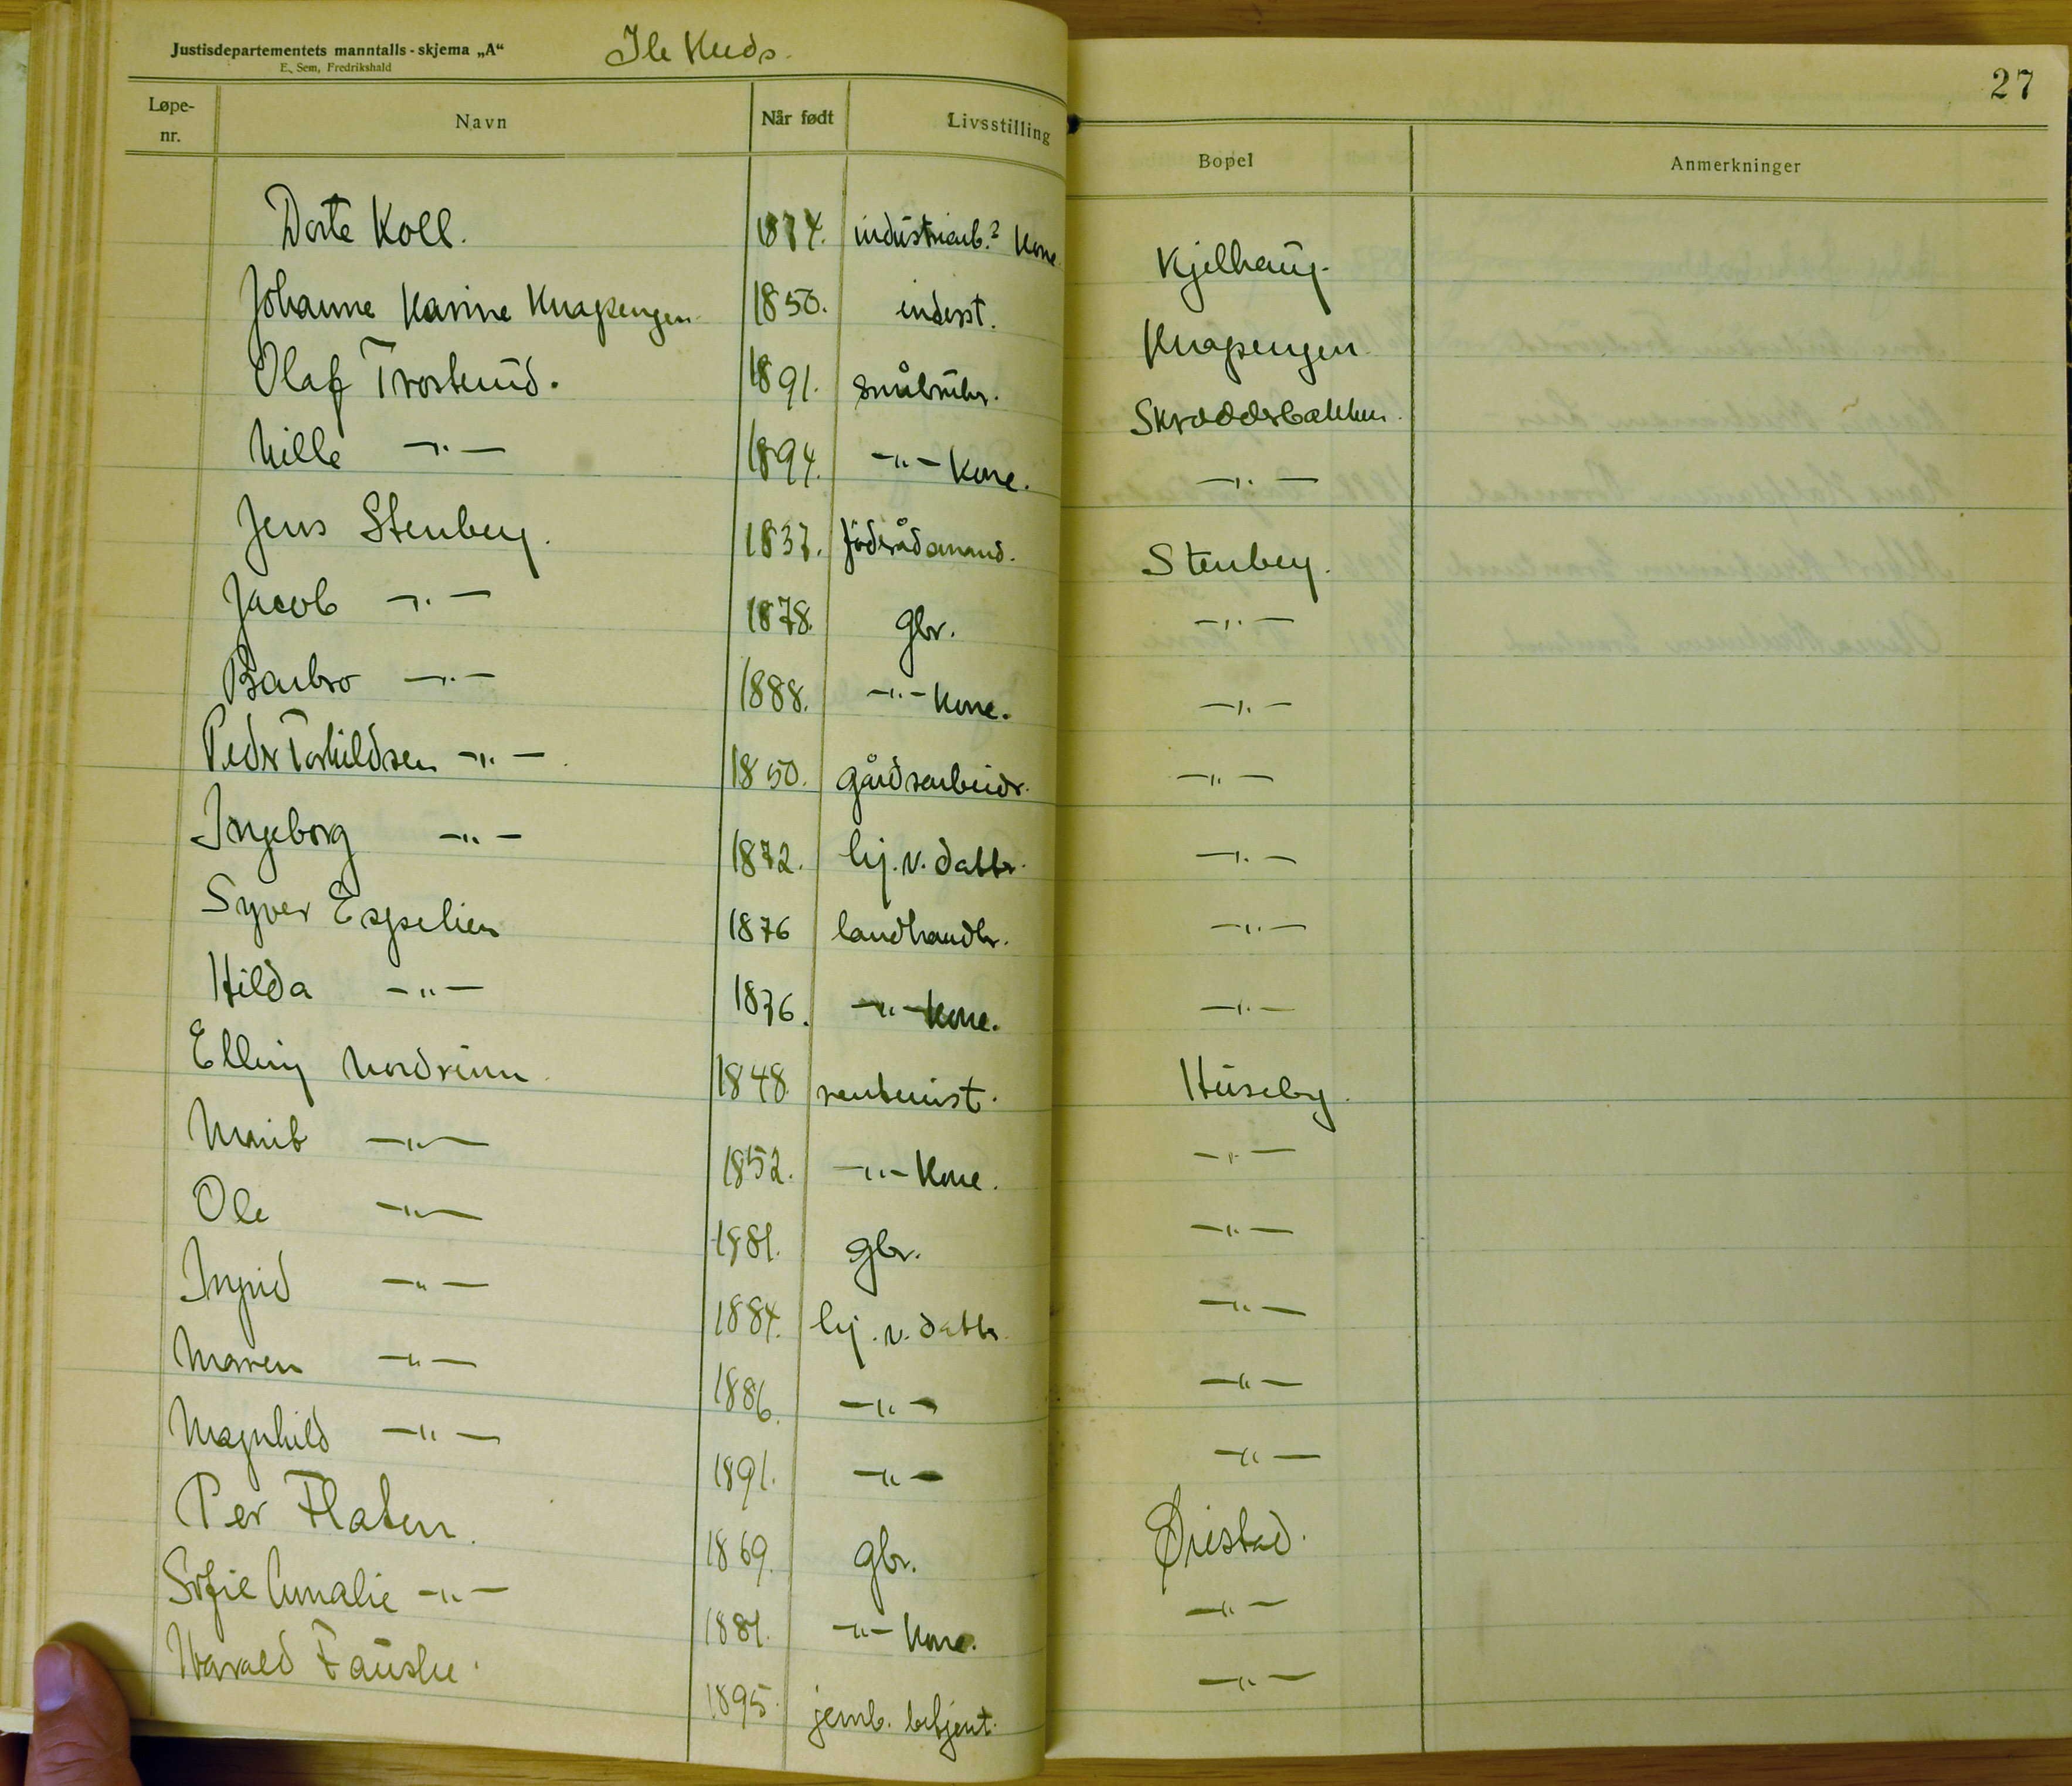 Justisdepartementets manntalls-skjema „A“
E. Sem, Fredrikshald
27
Løpe-nr. Navn Når født Livsstilling Bopel Anmerkninger
Dorte Koll. 1874. industriarb.s Kone. Kjelhaug.
Johanne Karine Knapengen 1850. inderst. Knapengen
Olaf Trosterud. 1891. småbruker. Skrædderbakken.
Mille —"— 1894. —"— Kone. —"—
Jens Stenberg. 1837. föderådsmand. Stenberg.
Jacob —"— 1878. gbr. —"—
Barbro —"— 1888. —"— Kone. —"—
Peder Torkildsen —"— 1850. gårdsarbeider. —"—
Ingeborg —"— 1872. hj.v. datter. —"—
Syver Espelien 1876 landhandler. —"—
Hilda —"— 1876. —"— Kone. —"—
Elling Nordrum 1848. rentenist. Huseby.
Marit —"— 1852. —"— Kone. —"—
Ole —"— 1881. gbr. —"—
Ingrid —"— 1884. hj.v. datter. —"—
Maren —"— 1886. —"— —"—
Magnhild —"— 1891. —"— —"—
Per Flaten. 1869. gbr. Øiestad.
Sofie Amalie —"— 1881. —"— Kone. —"—
Harald Fauske. 1895. jernb. betjent. —"—